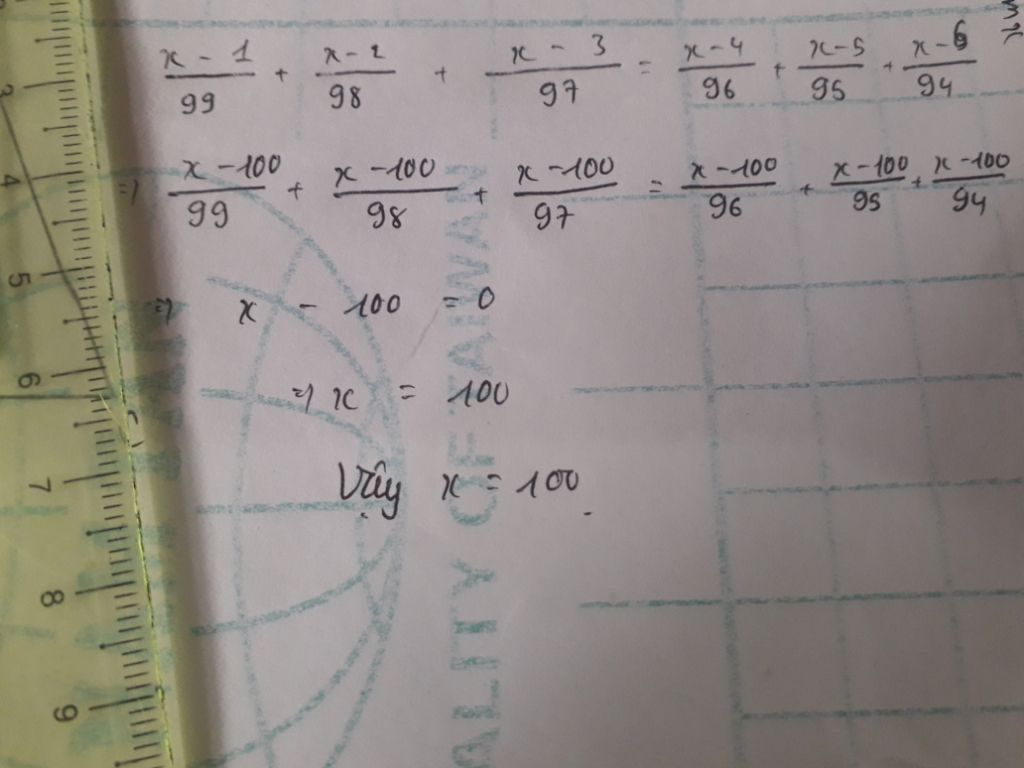 x-1/99 + x-2/98 + x-3/97 = x-4/96 + x-5/95 + x-6/94
=> x-100/99 + x-100/98 + x-100/97 = x-100/96 + x-100/95 + x-100/94
=> x - 100 = 0
=> x = 100
Vậy x = 100.
3
4
5
6
7
8
9
ALITY OF TAIWAN